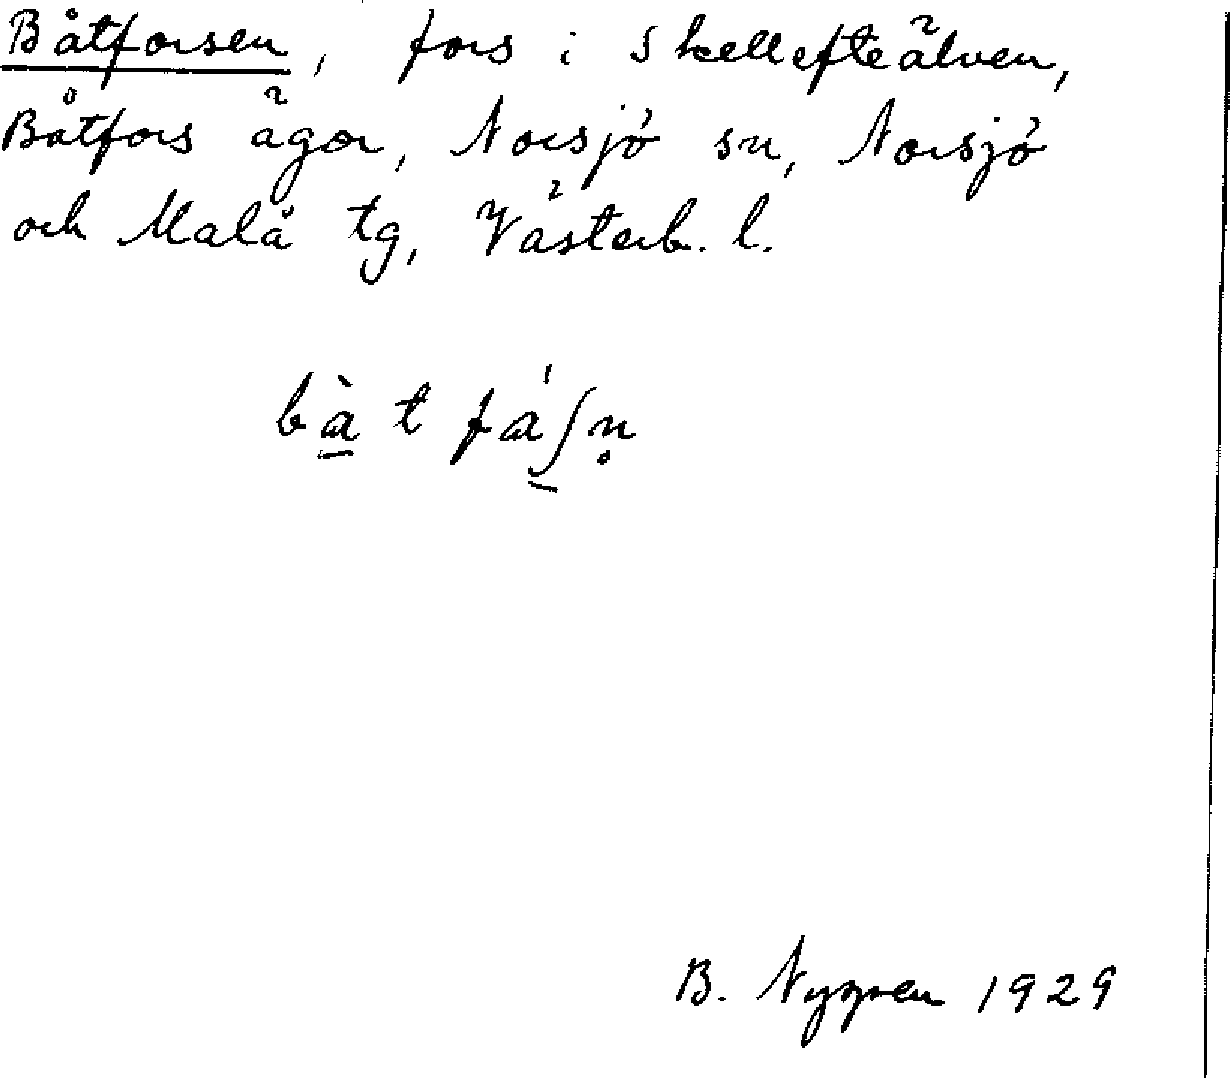 Båtforsen, fors i Skellefteälven,
Båtfors ägor, Norsjö sn, Norsjö
och Malå tg, Västerb. l.
bà̲t fá̲ʃn̥
B. Nygren 1929